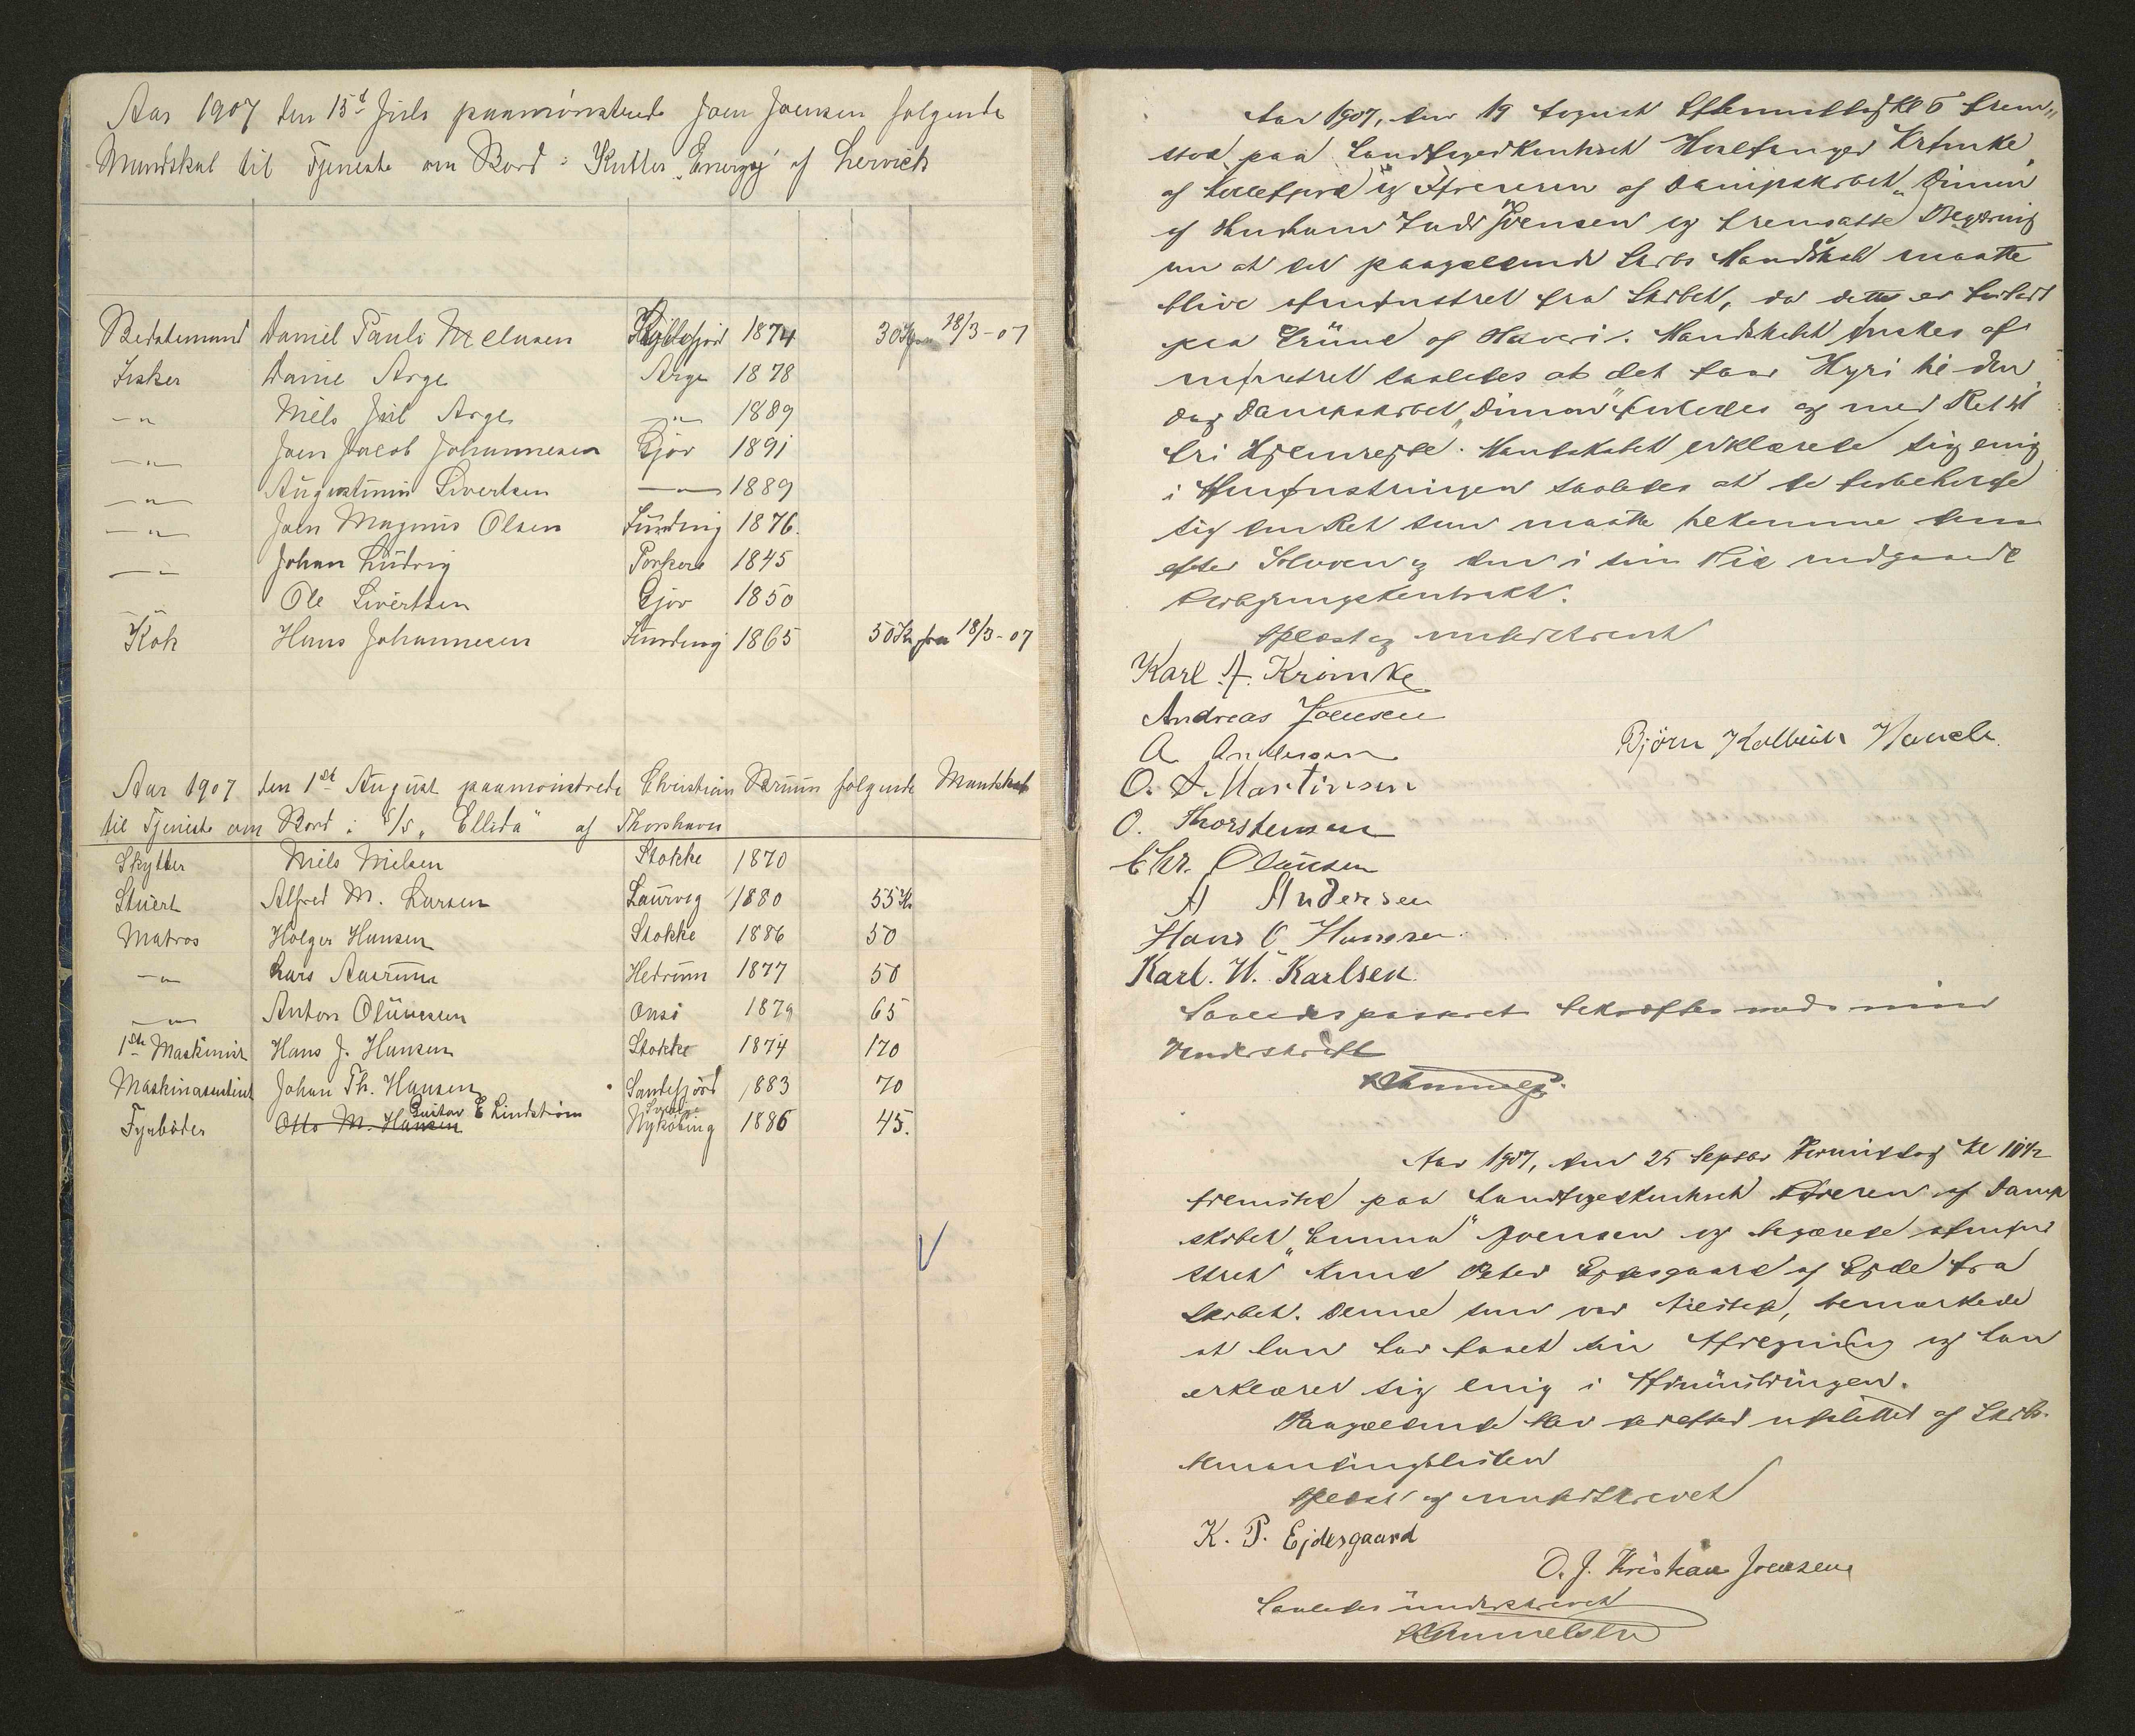 Aar 1907 den 15d Juli paamönstrede Joen Joensen folgende
Mandskab til Tjeneste om Bord i Kutter "Energy" af Lervick
Bedstemand Daniel Pauli Mclusen 1874 30 Kr fra 18/3-07
Fisker Danie Arge Arge 1878
-"- Niels Juul Arge -"- 1889
-"- Joen Jacob Johannesen Gjov 1891
-"- Augustinus Sivertsen -"- 1889
-"- Joen Magnus Olsen Funding 1876.
-"- Johan Ludvig Porkere 1845
Ole Sivertsen Gjov 1850
Kok Hans Johannesen Funding 1865 50 Kr fra 18/3-07
Aar 1907 den 1st August paamönstrede Christian Bruun folgende Mandskab
til Tjeniste om Bord i S/S "Ellida" af Thorshavn
Skytter Nils Nielsen Stokke 1870
Stuert Alfred M. Larsen Laurvig 1880 55 Kr
Matros Holger Hansen Stokke 1886 50
-"- Lars Aasrum Hedrum 1877 50
-"- Anton Olünesen Onsö 1879 65
1ste Maskinist Hans J. Hansen Stokke 1874 120
Maskinasistent Johan Th. Hansen Sandefjord 1883 70
Gustav E Lindström
Fyrböder Otto M. Hansen Nyköbing 1886 45.
Aar 1907, den 19 August Eftermiddag Kl 5 frem-
stod paa Landfogedkontoret Hvalfanger Krömke
af Kollefjord og Föreren af Dampskibet "Dimon"
af Thorshavn Joensen og fremsatte Begæring
om at det paagældende Skibs Mandskab maatte
blive afmönstret fra Skibet, da dette er forladt
paa Grund af Havari. Mandskabet önskes af-
mönstret saaledes at det faar Hyre til den
Dag Dampskibet "Dimon" forlodes og med Ret til
fri Hjemrejse. Mandskabet erklærede sig enig
i Afmönstringen saaledes at de forbeholdt
sig den Ret som maatte tilkomme dem
efter Loven og den i sin Tid indgaaede
Forhyringskontrakt.
Oplæst og underskrevet
Karl A. Krömke
Andreas Joensen
Björn Kolbein
A Andersen
O. A. Martinsen
O. Thorstensen
Chr. Olausen
A Andersen
Hans C. Hansen
Karl. W. Karlsen.
Saaledes passeret bekræftes med min
Underskrift
Aar 1907, den 25 Septbr Formiddag Kl 10½
fremstod paa Landfogedkontoret Föreren af Damp
skibet "Emma" Joensen og begærede afmön
stret Knud Peter Ejdesgaard af Ejde fra
Skibet. Denne som var tilstede, bemærkede
at han har faaet sin Afregning og han
erklæret sig enig i Afmönstringen.
Paagældende blev derefter udslettet af Skibs-
bemandingslisten
Oplæst og underskrevet
K. P. Ejdesgaard
O. J. Kristian Joensen
Saaledes underskrevet